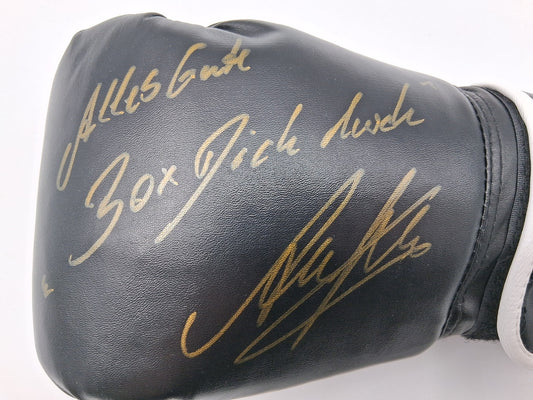 Alles Gute
Box Dich durch